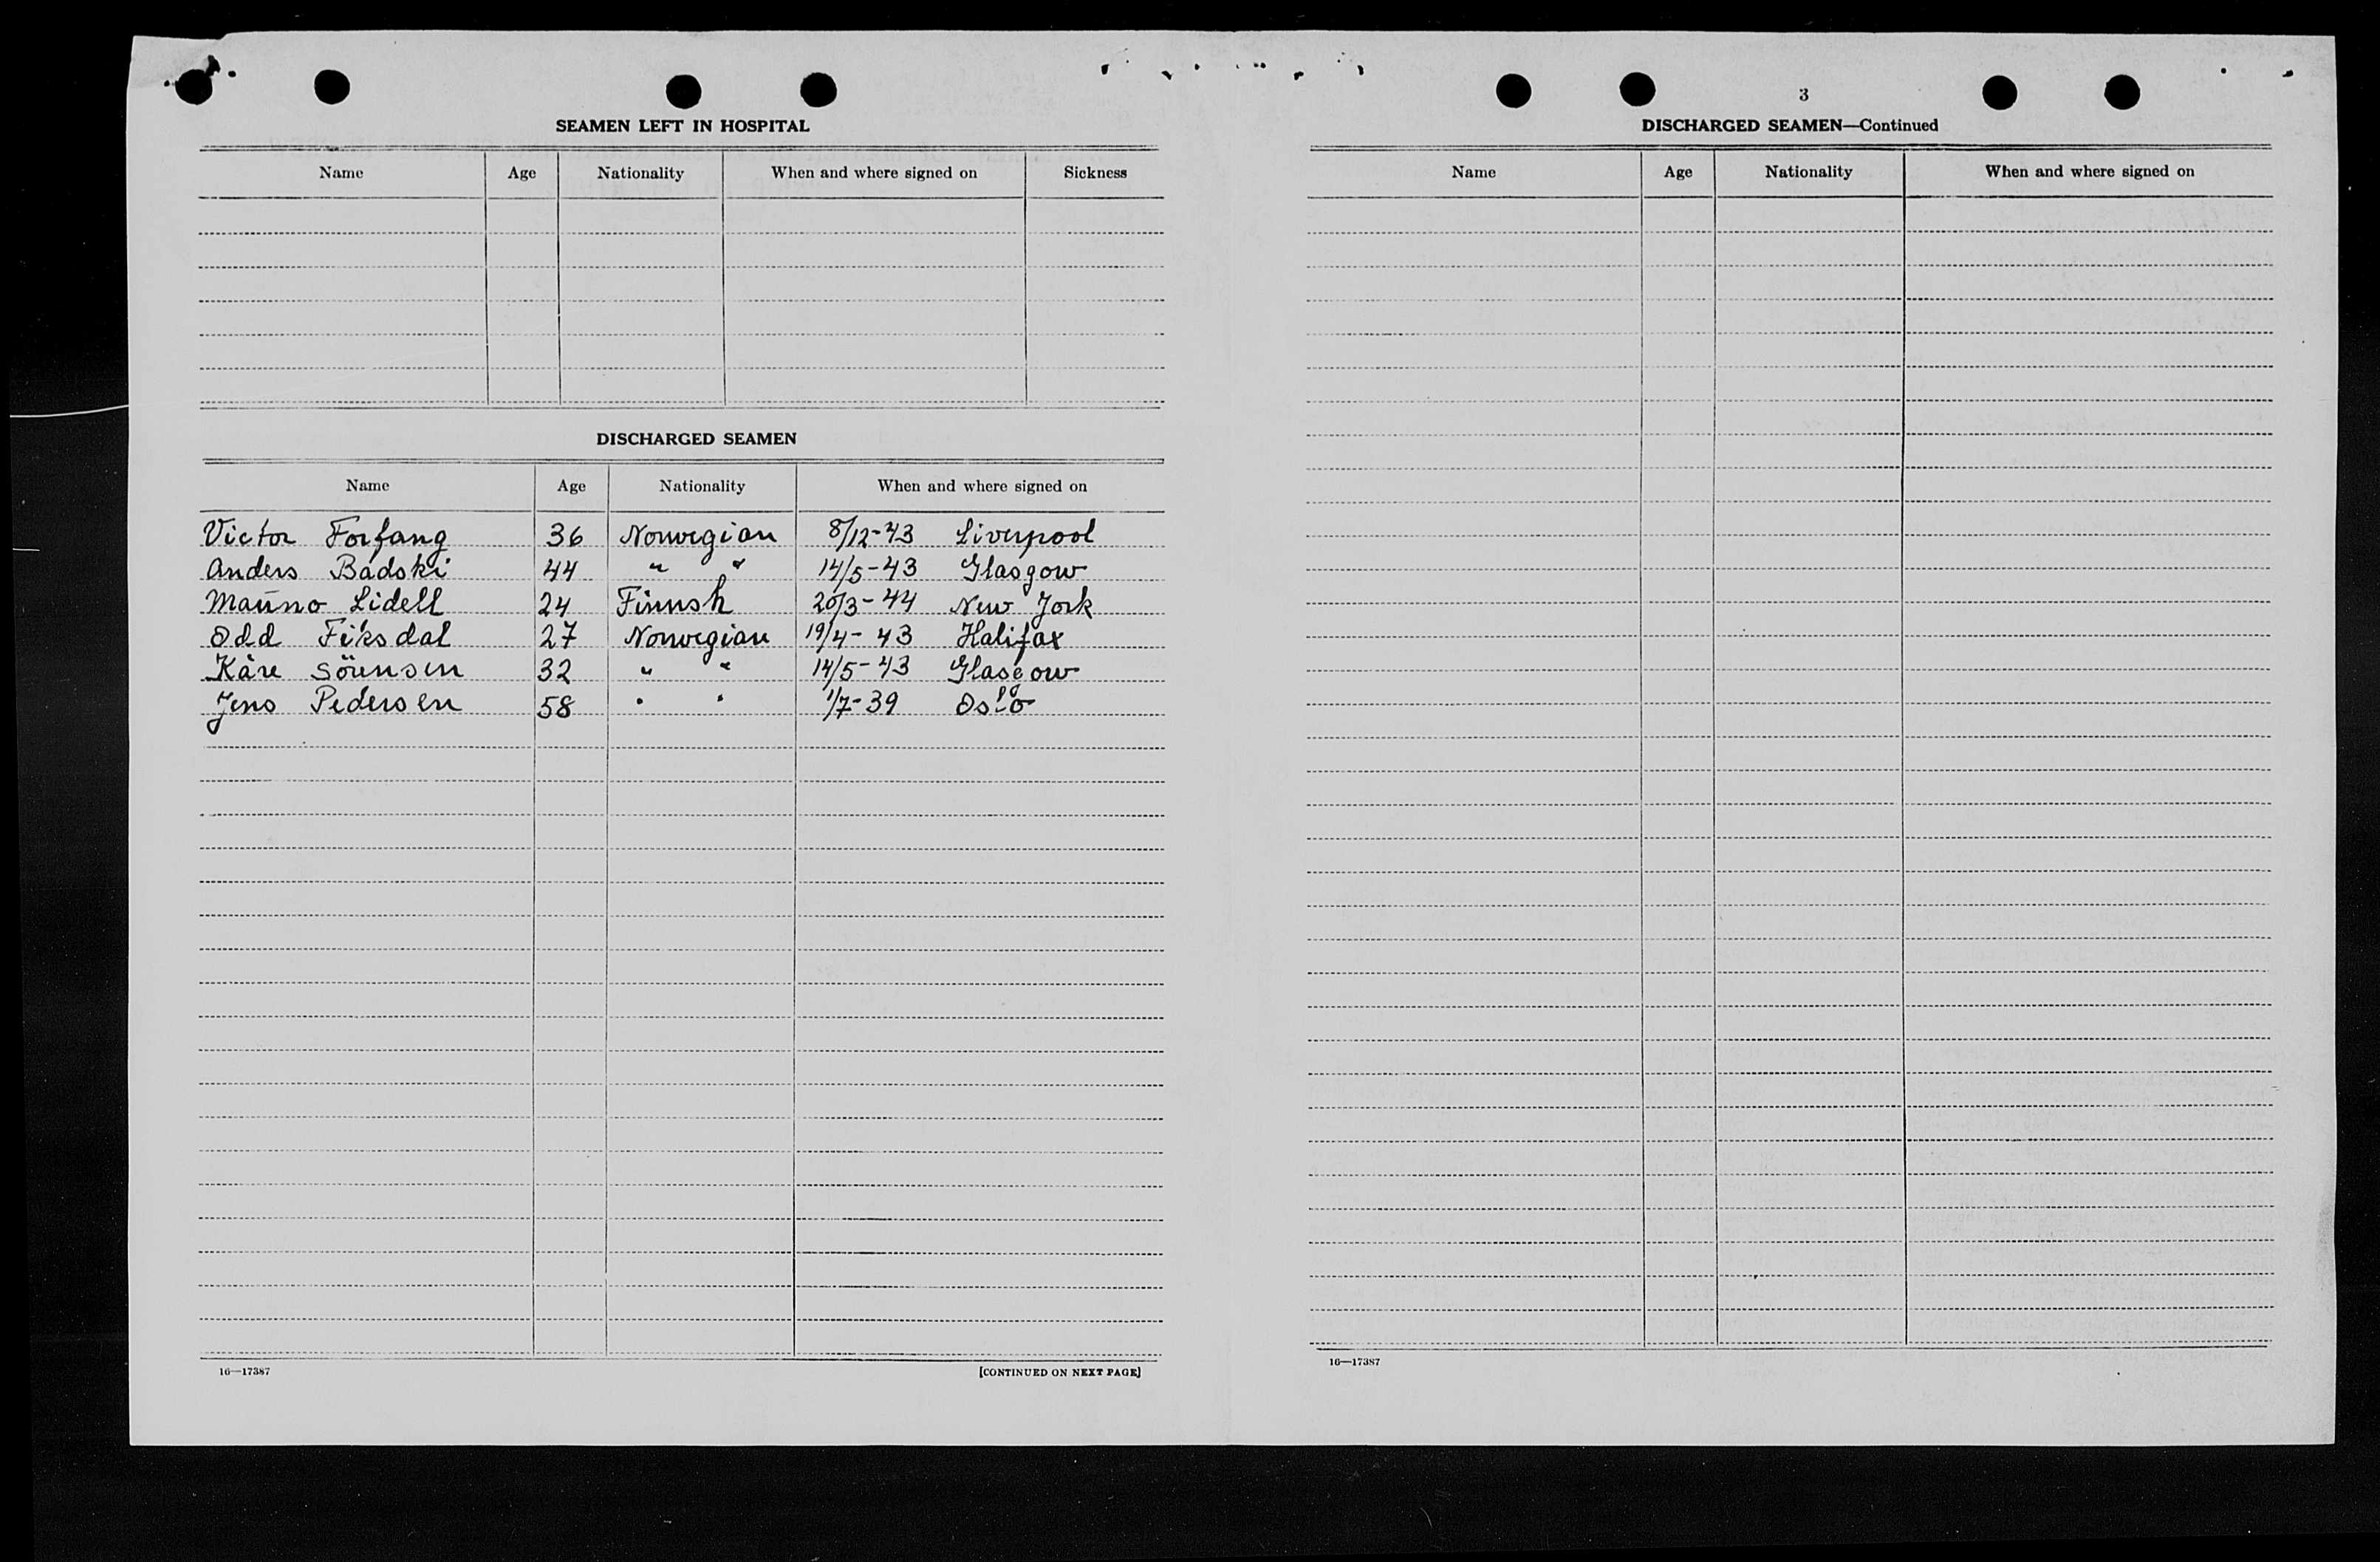 SEAMEN LEFT IN HOSPITAL
Name Age Nationality When and where signed on Sickness
DISCHARGED SEAMEN
Name Age Nationality When and where signed on
Victor Forfang 36 Norwegian 8/12-43 Liverpool
Anders Bådski 44 " " 14/5-43 Glasgow
Mauno Lidell 24 Finnsh 20/3-44 New York
Odd Fiksdal 27 Norwegian 19/4-43 Halifax
Kåre Sörensen 32 " " 14/5-43 Glasgow
Jens Pedersen 58 " " 1/7-39 Oslo
16—17387 [CONTINUED ON NEXT PAGE]
3
DISCHARGED SEAMEN—Continued
Name Age Nationality When and where signed on
16—17387